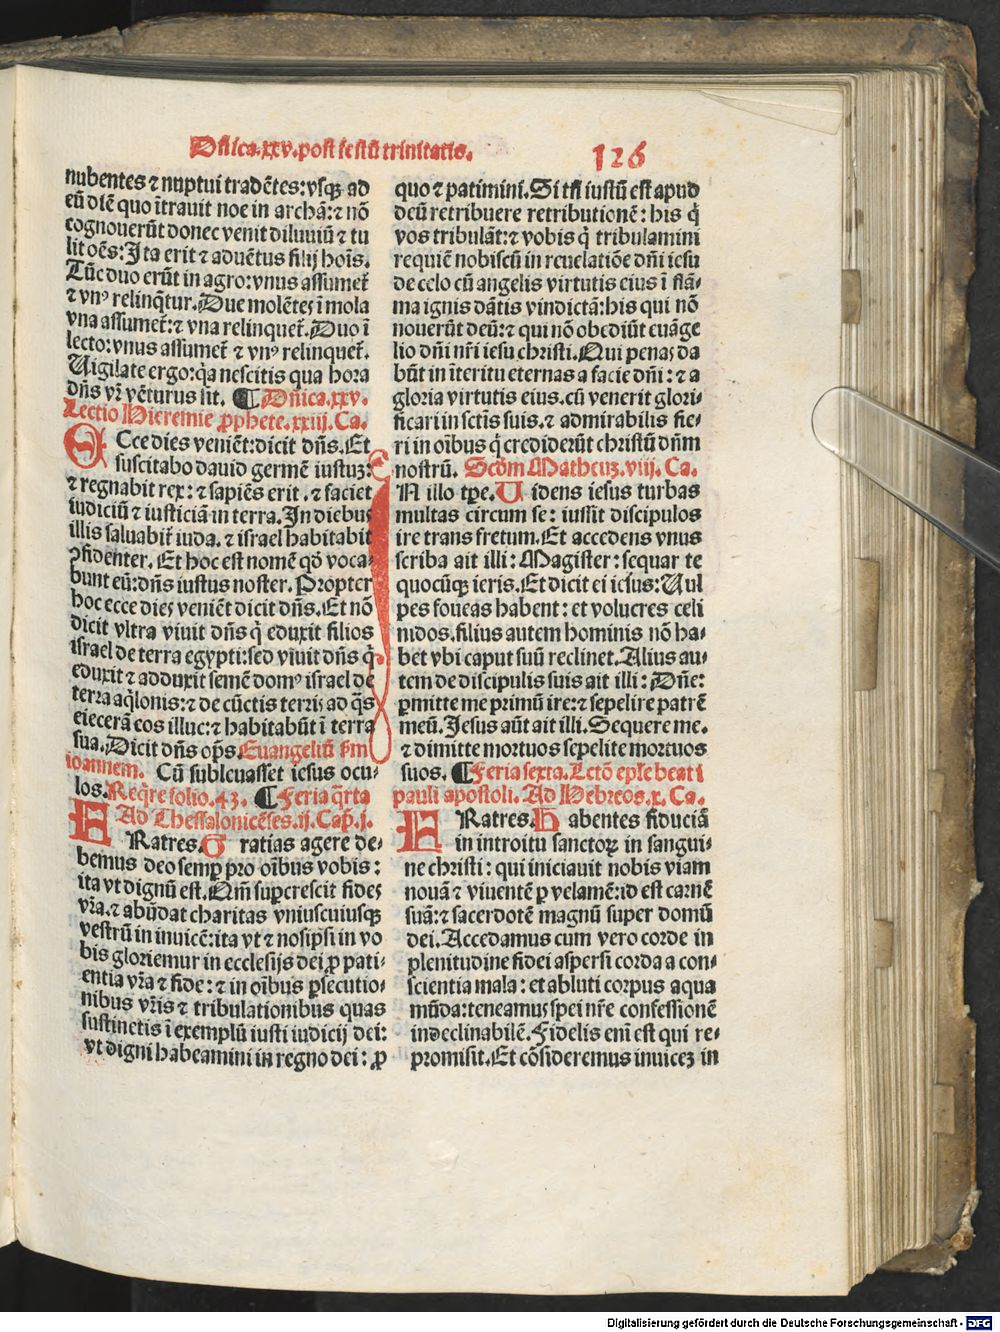 Dñica.xxv.post festũ trinitatis.
126
nubentes ⁊ nuptui tradẽtes: vsqꝫ ad
eũ diẽ quo ĩtrauit noe in archã: ⁊ nõ
cognouerũt donec venit diluuiũ ⁊ tu
lit oẽs: Ita erit ⁊ aduẽtus filij hoĩs.
Tũc duo erũt in agro: vnus assumet᷑
⁊ vnꝰ relinq̃tur. Due molẽtes ĩ mola
vna assumet᷑: ⁊ vna relinquet᷑. Duo ĩ
lecto: vnus assumet᷑ ⁊ vnꝰ relinquet᷑.
Uigilate ergo: q̃a nescitis qua hora
dñs vr̃ vẽturus sit. ¶ Dñica.xxv.
Lectio Hieremie ꝓphete.xxiij.Ca.
ECce dies veniẽt: dicit dñs. Et
suscitabo dauid germẽ iustuꝫ:
⁊ regnabit rex: ⁊ sapiẽs erit. ⁊ faciet
iudiciũ ⁊ iusticiã in terra. In diebus
illis saluabit᷑ iuda. ⁊ israel habitabit
ꝯfidenter. Et hoc est nomẽ qď voca⸗
bunt eũ: dñs iustus noster. Propter
hoc ecce dies veniẽt dicit dñs. Et nõ
dicit vltra viuit dñs q̃ eduxit filios
israel de terra egypti: sed viuit dñs q̃
eduxit ⁊ adduxit semẽ domꝰ israel de
terra aq̃lonis: ⁊ de cũctis terris ad q̃s
eiecerã eos illuc: ⁊ habitabũt ĩ terra
sua. Dicit dñs op̃s. Euangeliũ ẜm
ioannem. Cũ subleuasset iesus ocu⸗
los. Req̃re folio.43. ¶ Feria q̃rta
Ad Thessalonicẽses.ij.Cap̃.j.
FRatres. Gratias agere de⸗
bemus deo semꝑ pro oĩbus vobis:
ita vt dignũ est. Qm̃ suꝑcrescit fides
vr̃a. ⁊ abũdat charitas vniuscuiusqꝫ
vestrũ in inuicẽ: ita vt ⁊ nosip̃si in vo
bis gloriemur in ecclesijs dei ꝓ pati⸗
entia vr̃a ⁊ fide: ⁊ in oĩbus ꝑsecutio⸗
nibus vr̃is ⁊ tribulationibus quas
sustinetis ĩ exemplũ iusti iudicij dei:
vt digni habeamini in regno dei: ꝓ
quo ⁊ patimini. Si tñ iustũ est apud
deũ retribuere retributionẽ: his q̃
vos tribulãt: ⁊ vobis q̃ tribulamini
requiẽ nobiscũ in reuelatiõe dñi iesu
de celo cũ angelis virtutis eius ĩ flã⸗
ma ignis dãtis vindictã: his qui nõ
nouerũt deũ: ⁊ qui nõ obediũt euãge
lio dñi nr̃i iesu christi. Qui penas da
bũt in ĩteritu eternas a facie dñi: ⁊ a
gloria virtutis eius. cũ venerit glori⸗
ficari in sctĩs suis. ⁊ admirabilis fie⸗
ri in oĩbus q̃ crediderũt christũ dñm
nostrũ. Scďm Matheuꝫ.viij.Ca.
IN illo tp̃e. Uidens iesus turbas
multas circum se: iussit discipulos
ire trans fretum. Et accedens vnus
scriba ait illi: Magister: sequar te
quocũqꝫ ieris. Et dicit ei iesus: Uul
pes foueas habent: et volucres celi
nidos. filius autem hominis nõ ha⸗
bet vbi caput suũ reclinet. Alius au⸗
tem de discipulis suis ait illi: Dñe:
ꝑmitte me primũ ire: ⁊ sepelire patrẽ
meũ. Iesus aũt ait illi. Sequere me.
⁊ dimitte mortuos sepelire mortuos
suos. ¶ Feria sexta. Lectõ ep̃le beati
pauli apostoli. Ad Hebreos.x.Ca.
FRatres. Habentes fiduciã
in introitu sanctoꝝ in sangui⸗
ne christi: qui iniciauit nobis viam
nouã ⁊ viuentẽ ꝑ velamẽ: id est carnẽ
suã: ⁊ sacerdotẽ magnũ super domũ
dei. Accedamus cum vero corde in
plenitudine fidei aspersi corda a con⸗
scientia mala: et abluti corpus aqua
mũda: teneamus spei nr̃e confessionẽ
indeclinabilẽ. Fidelis enĩ est qui re⸗
promisit. Et cõsideremus inuiceꝫ in
Digitalisierung gefördert durch die Deutsche Forschungsgemeinschaft - DFG